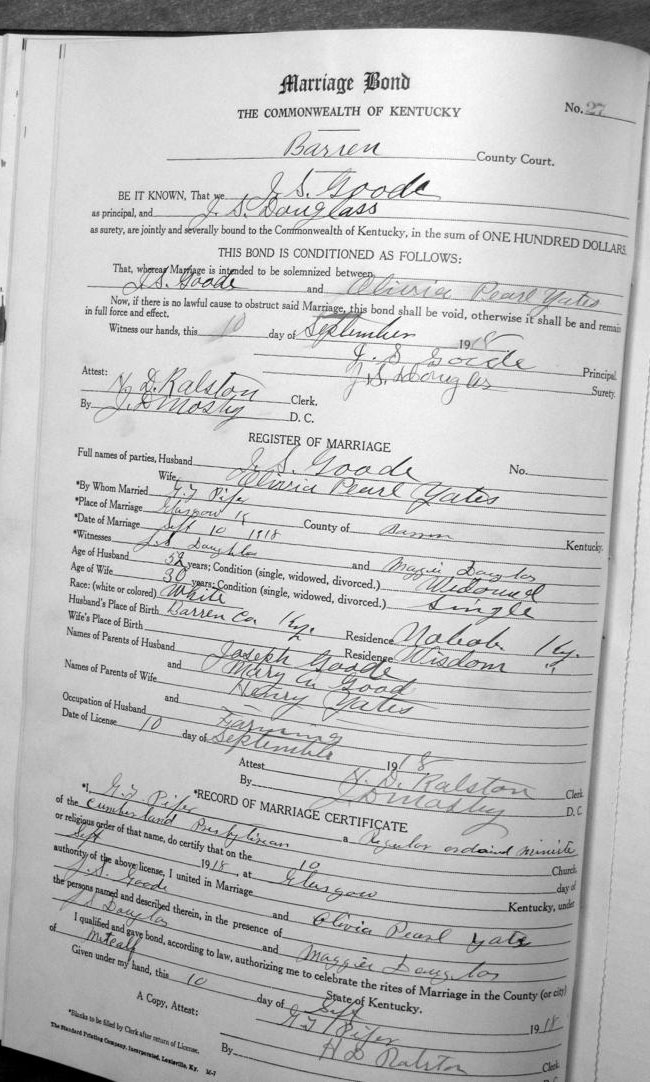 Marriage Bond
THE COMMONWEALTH OF KENTUCKY
No. 27
Barren County Court.
BE IT KNOWN, That we J. S. Goode
as principal, and J. S. Douglass
as surety, are jointly and severally bound to the Commonwealth of Kentucky, in the sum of ONE HUNDRED DOLLARS.
THIS BOND IS CONDITIONED AS FOLLOWS:
That, whereas Marriage is intended to be solemnized between
J. S. Goode and Olivia Pearl Yates
Now, if there is no lawful cause to obstruct said Marriage, this bond shall be void, otherwise it shall be and remain
in full force and effect.
Witness our hands, this 10 day of September 1918
J. S. Goode Principal.
J. S. Douglas Surety.
Attest:
H. D. Ralston Clerk.
By J. D Mosby D. C.
REGISTER OF MARRIAGE
Full names of parties, Husband J. S. Goode No.
Wife Olivia Pearl Yates
*By Whom Married G. T. Pifer
*Place of Marriage Glasgow County of Barren Kentucky.
*Date of Marriage Sept 10 1918
*Witnesses J. S. Douglas and Maggie Douglas
Age of Husband 52 years; Condition (single, widowed, divorced.) Widowed
Age of Wife 30 years; Condition (single, widowed, divorced.) Single
Race: (white or colored) White
Husband's Place of Birth Barren Co Ky. Residence Nobob Ky.
Wife's Place of Birth Residence Wisdom "
Names of Parents of Husband Joseph Goode
and Mary A. Good
Names of Parents of Wife Henry Yates
and
Occupation of Husband Farming
Date of License 10 day of September 1918
Attest H. D. Ralston Clerk
By J D Mosby D. C.
*RECORD OF MARRIAGE CERTIFICATE
*I, G. T. Pifer a Regular ordaind ministe
of the Cumberland Presbyterian Church
or religious order of that name, do certify that on the 10 day of
Sept 1918, at Glasgow Kentucky, under
authority of the above license, I united in Marriage
J. S. Goode and Olivia Pearl Yates
the persons named and described therein, in the presence of
J S Douglas and Maggie Douglas
I qualified and gave bond, according to law, authorizing me to celebrate the rites of Marriage in the County (or city)
of Metcalf State of Kentucky.
Given under my hand, this 10 day of Sept 1918
G. T. Pifer
A Copy, Attest: H D Ralston Clerk
By
*Blanks to be filled by Clerk after return of License.
The Standard Printing Company, Incorporated, Louisville, Ky. M-7